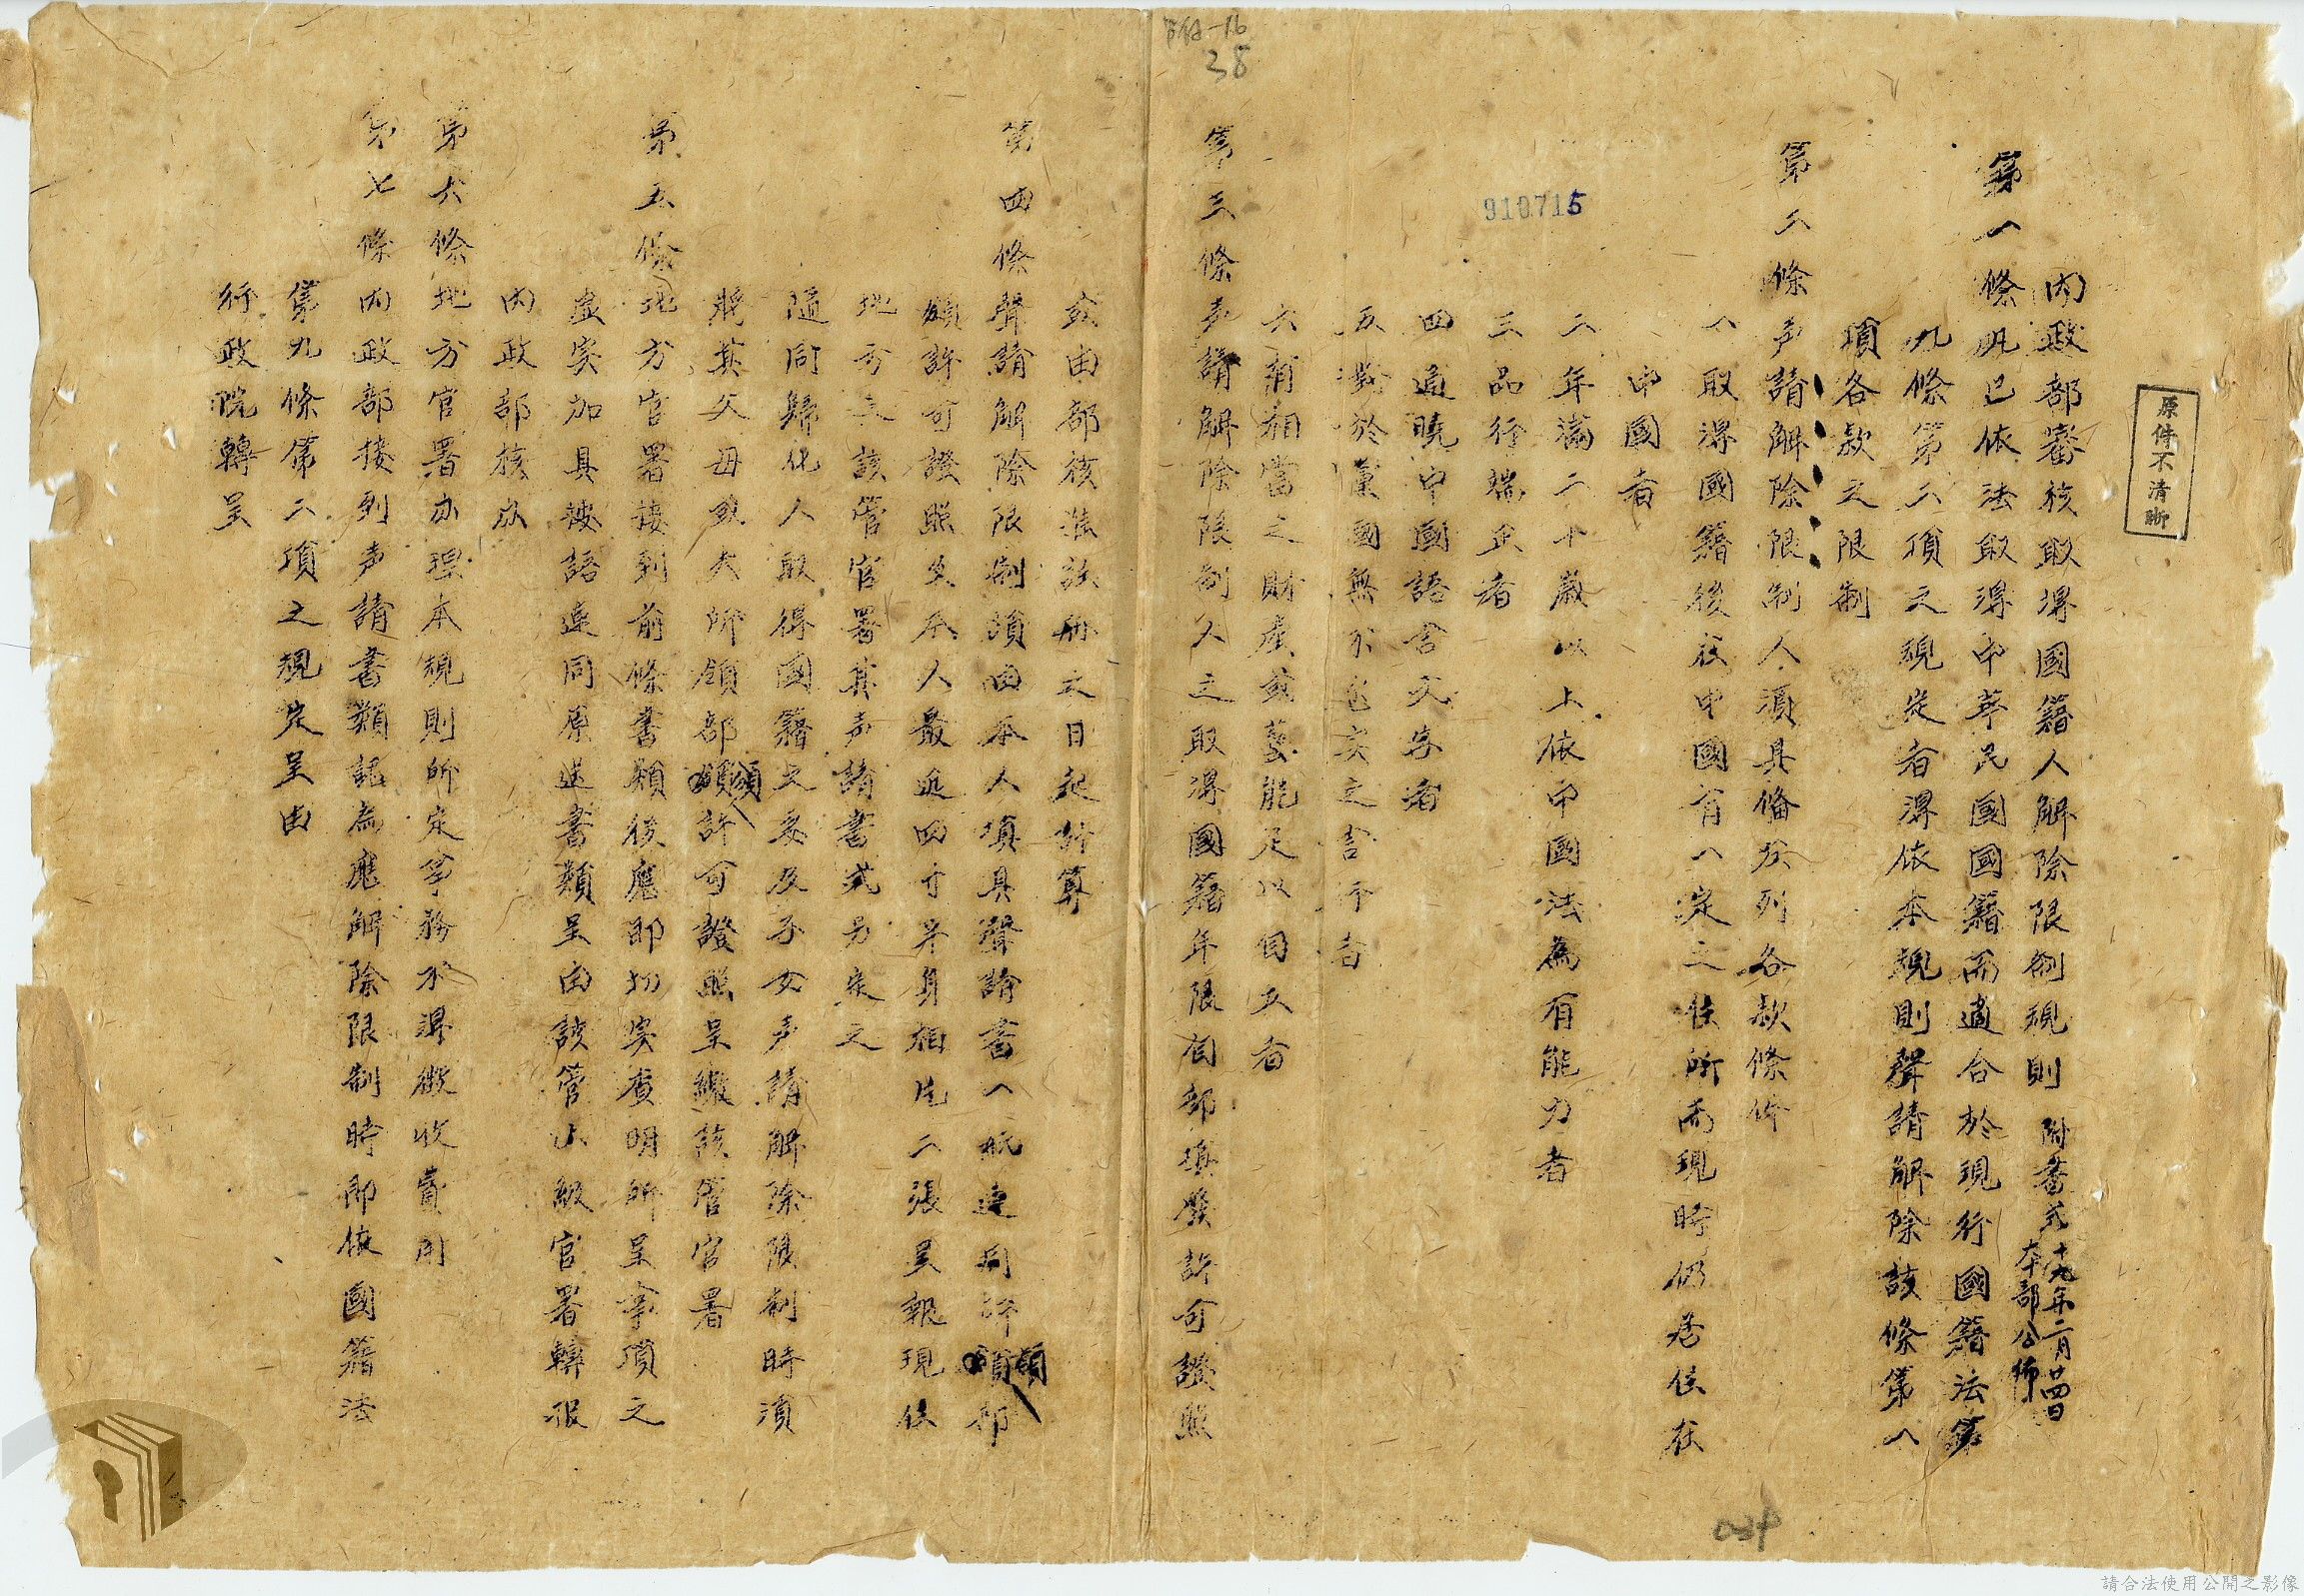 附-16
38
910715
原件不清晰
內政部審核取得國籍人解除限制規則 附書式 十九年二月廿四日 本部公佈
第一條 凡已依法取得中華民國國籍而適合於現行國籍法第
九條第二項之規定者得依本規則聲請解除該條第一
項各款之限制
第二條 声請解除限制人須具備左列各款條件
一 取得國籍後在中國有一定之住所而現時仍居住在
中國者
二 年滿二十歲以上依中國法為有能力者
三 品行端正者
四 通曉中國語言文字者
五 對於黨國無不忠实之言行者
六 有相當之財產或藝能足以自立者
第三條 声請解除限制人之取得國籍年限自部填發許可證照
或由部核准註冊之日起計算
第四條 聲請解除限制須由本人填具聲請書一紙連同所領部
頒許可證照及本人最近四寸半身相片二張呈報現住
地方之該管官署其声請書式另定之
隨同歸化人取得國籍之妻及子女声請解除限制時須
將其父母或夫所領部頒許可證照呈繳該管官署
第五條 地方官署接到前條書類後應即切实查明所呈事項之
虛实加具按語連同原送書類呈由該管上級官署轉报
內政部核办
第六條 地方官署办理本規則所定事務不得徵收費用
第七條 內政部接到声請書類認為應解除限制時即依國籍法
第九條第二項之規定呈由
行政院轉呈
請合法使用公開之影像